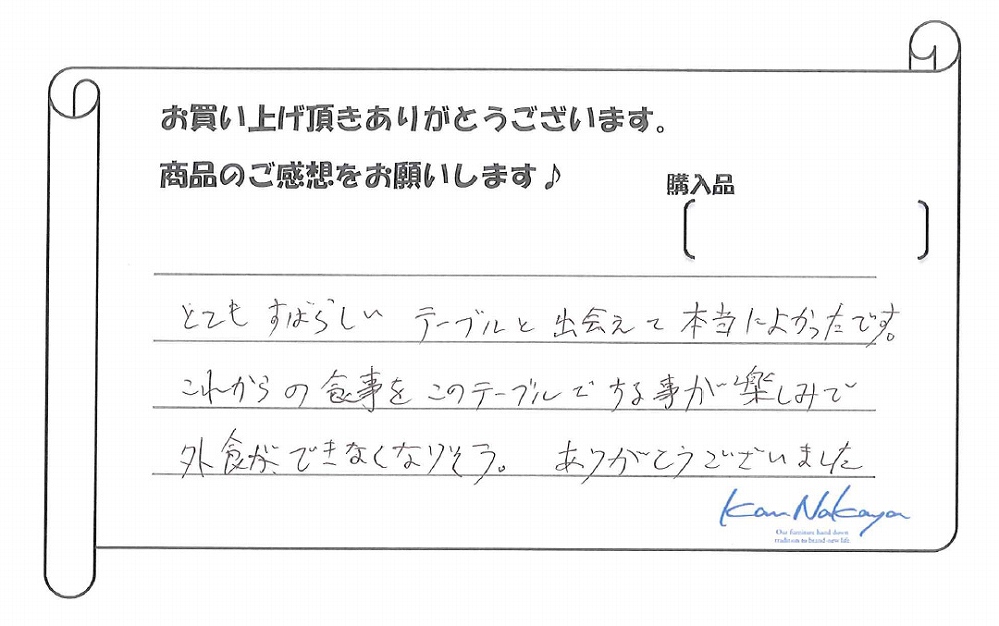 お買い上げ頂きありがとうございます。
商品のご感想をお願いします♪
購入品
とても すばらしい テーブルと 出会えて 本当によかったです。
これからの 食事を このテーブルで する事が 楽しみで
外食が、できなくなりそう。 ありがとうございました
Kan Nakaya
Our furniture hand down
tradition to brand-new life